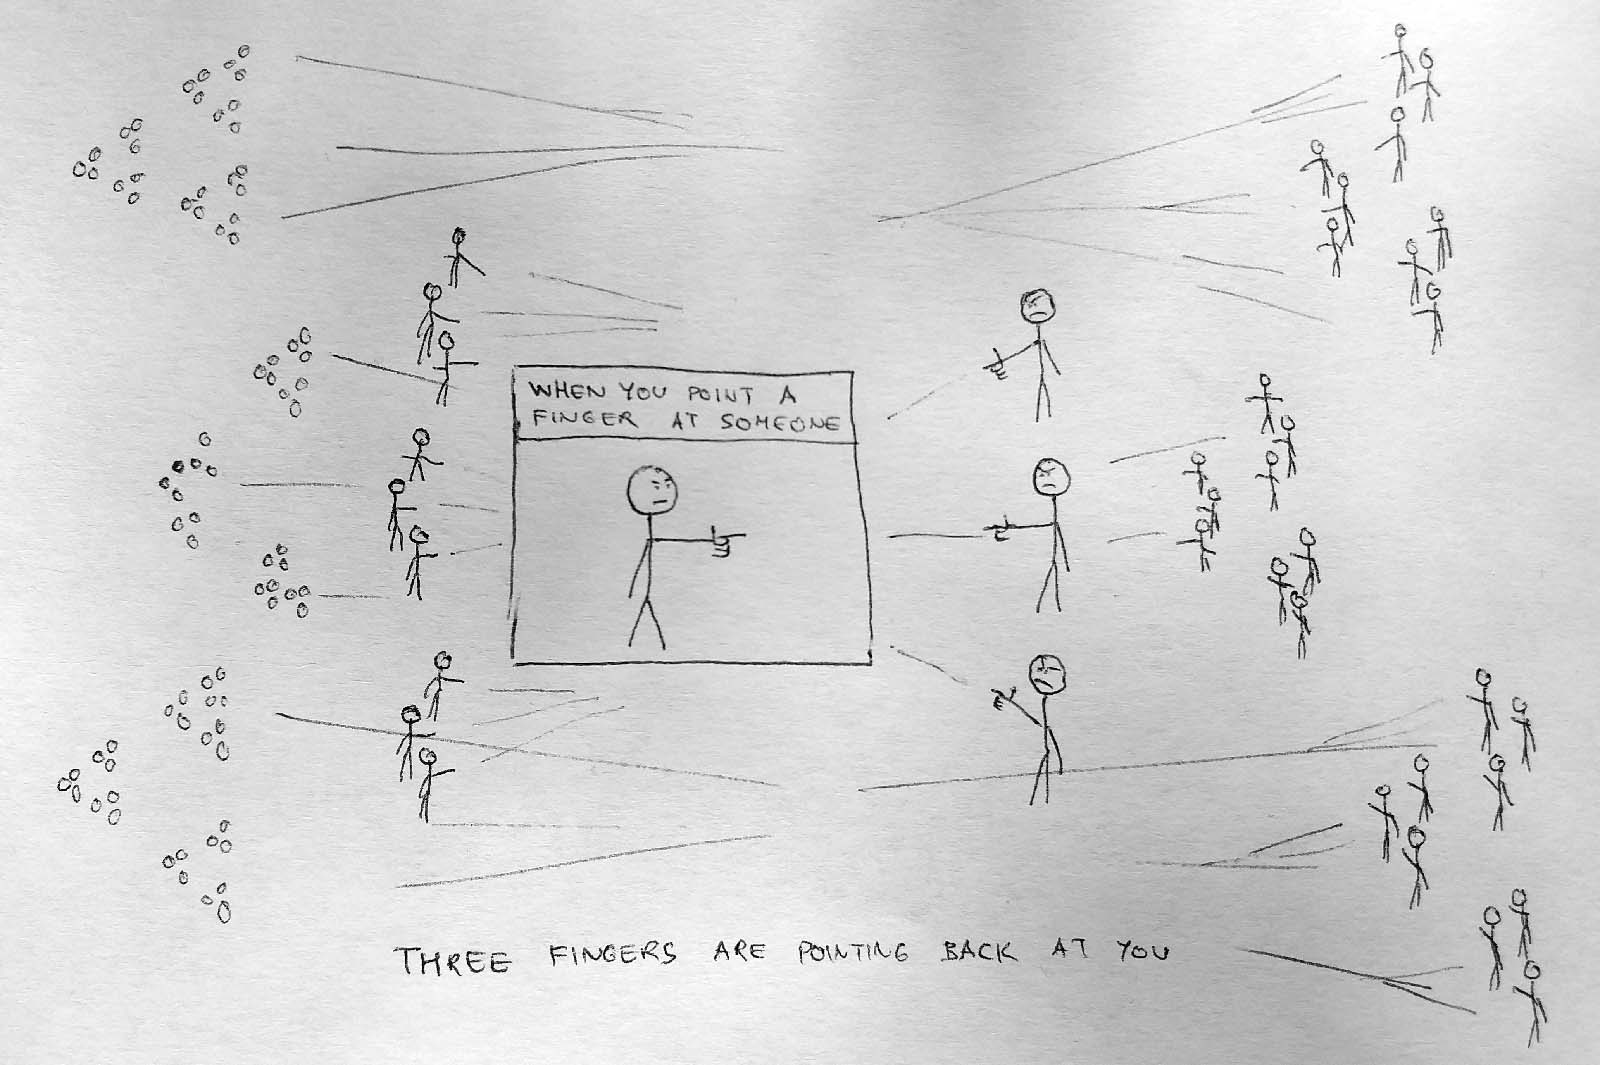 WHEN YOU POINT A
FINGER AT SOMEONE
THREE FINGERS ARE POINTING BACK AT YOU